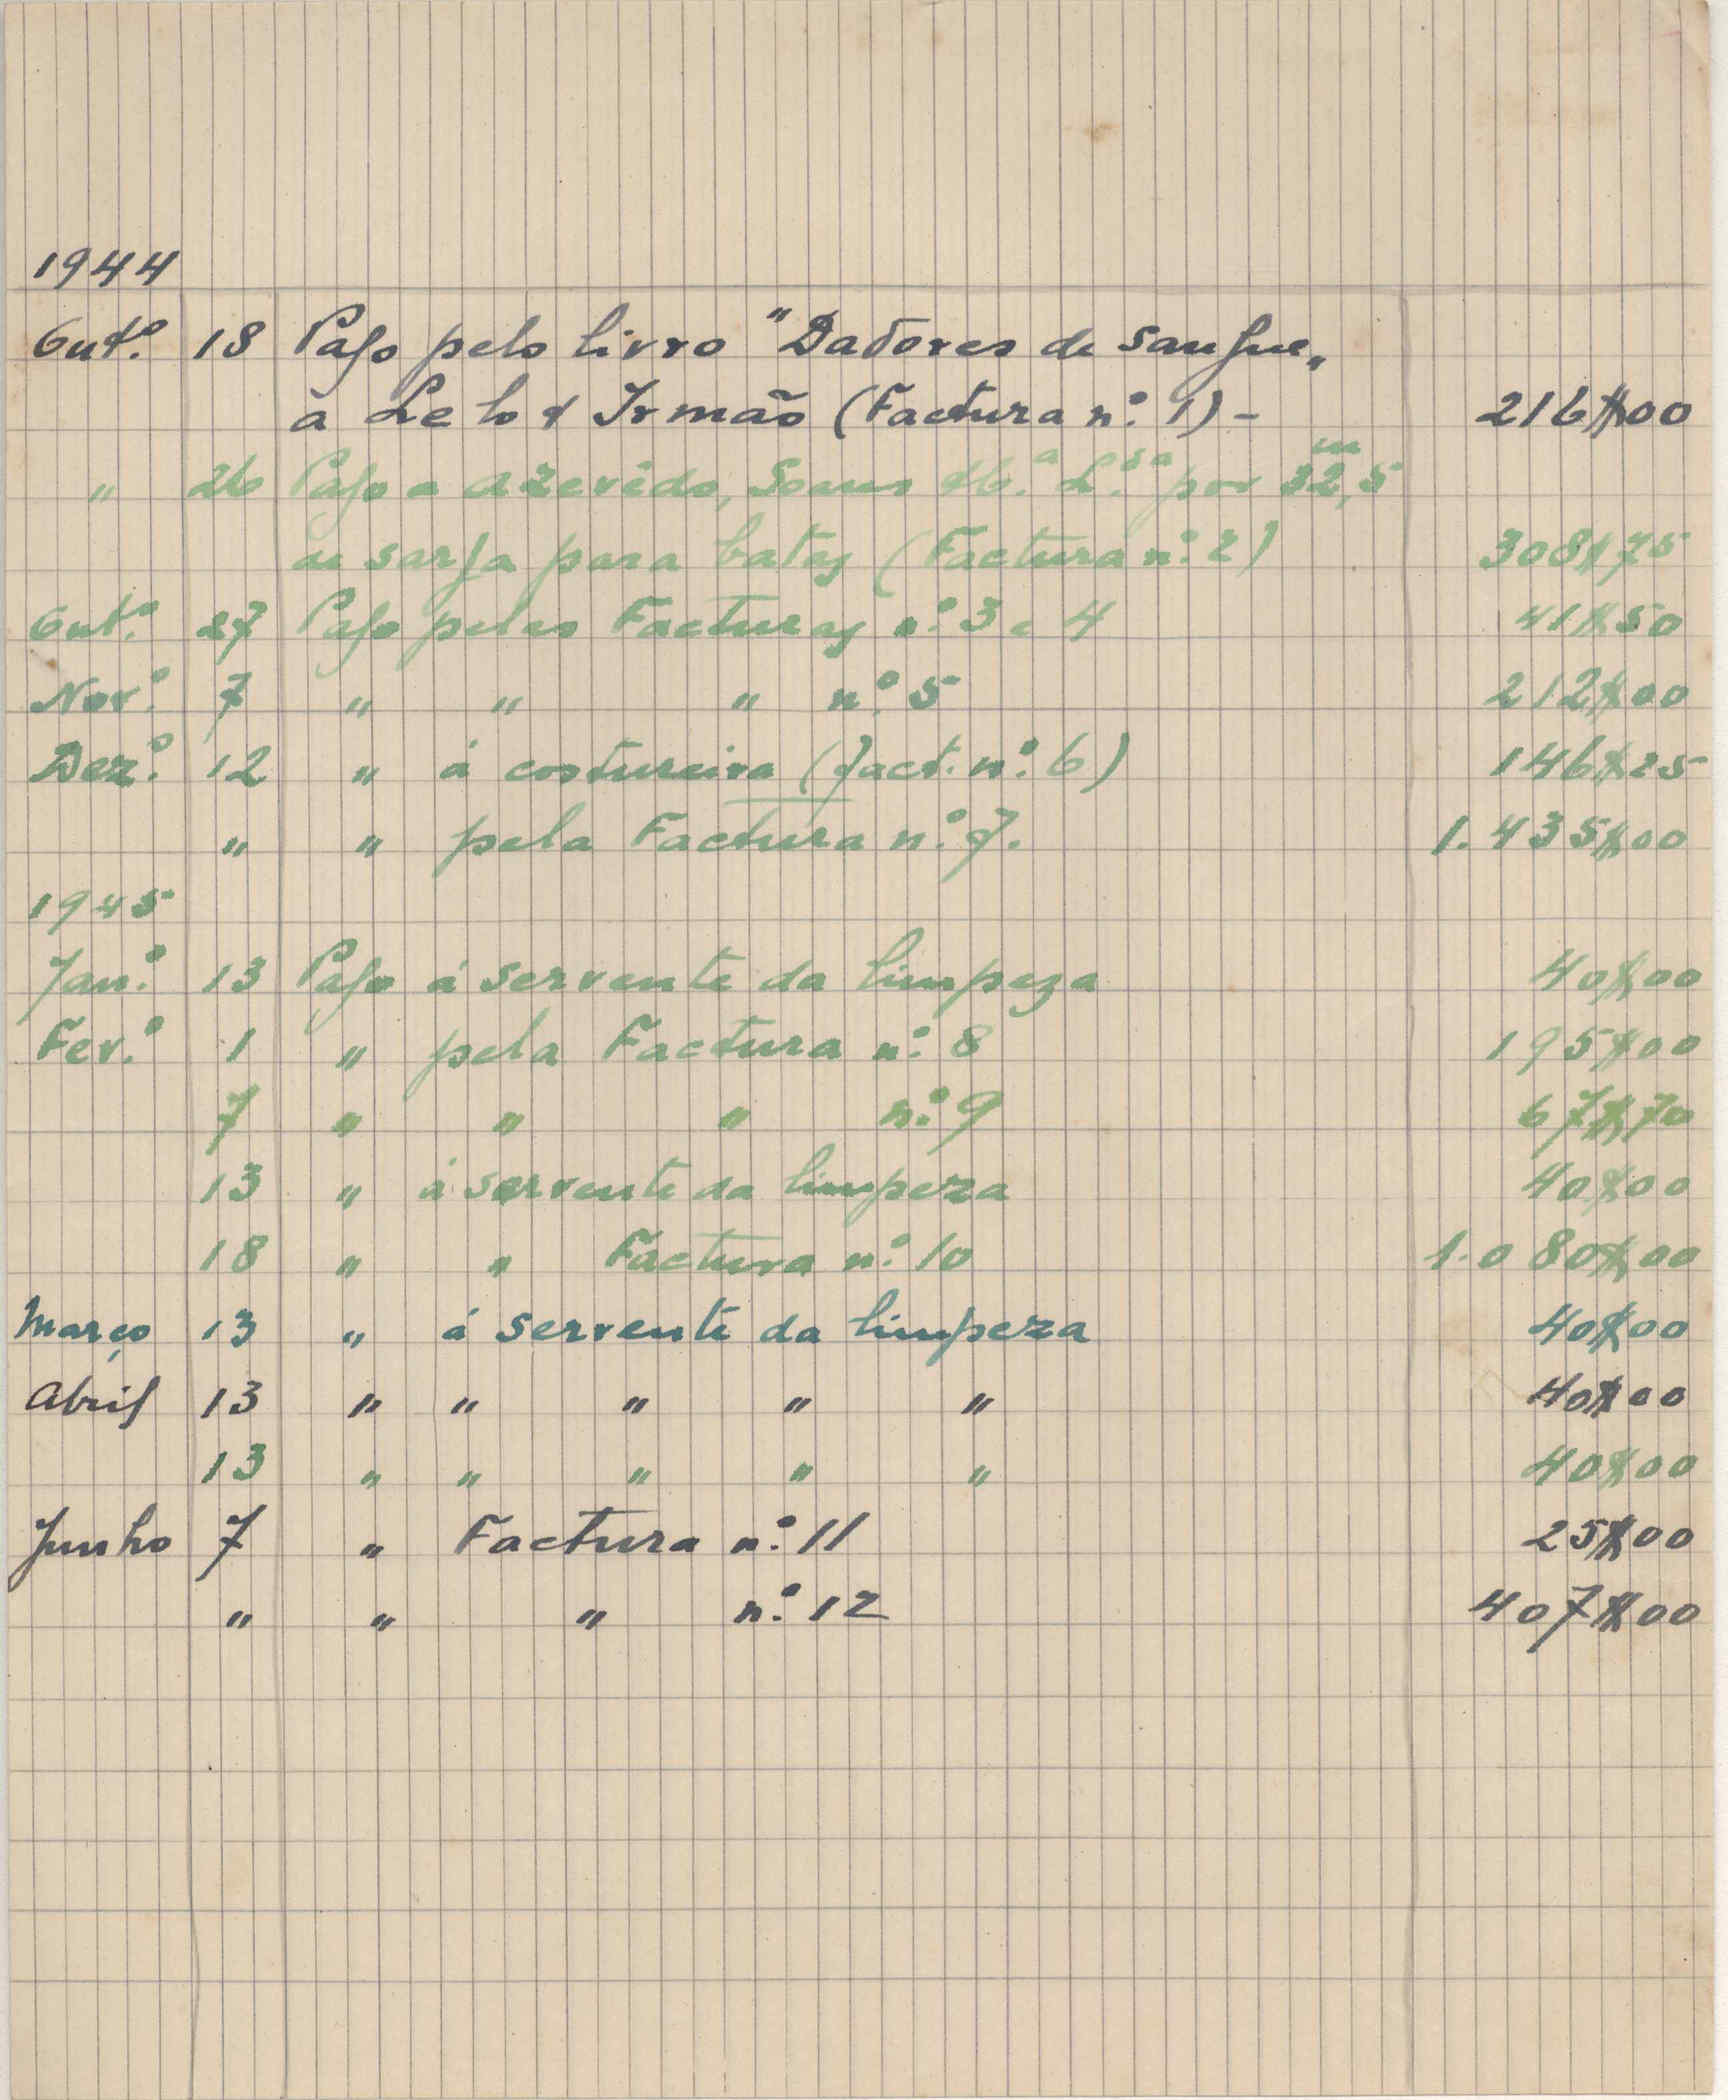 1944
Out.º 18 Pago pelo livro "Dadores de sangue„
à Lello & Irmão (Factura n.º 1) - 216$00
" 26 Pago a Azevêdo, Soares & C.ª L.da por 32,5 m
de sarja para batas (Factura n.º 2) 308$75
Out.º 27 Pago pelas Facturas n.º 3 e 4 41$50
Nov.º 7 " " " n.º 5 212$00
Dez.º 12 " á costureira (fact. n.º 6) 146$25
" " pela Factura n.º 7. 1.435$00
1945
Jan.º 13 Pago á servente da limpeza 40$00
Fev.º 1 " pela Factura n.º 8 195$00
7 " " " n.º 9 67$70
13 " á servente da limpeza 40$00
18 " " Factura n.º 10 1.080$00
Março 13 " á servente da limpeza 40$00
Abril 13 " " " " " 40$00
13 " " " " " 40$00
Junho 7 " Factura n.º 11 25$00
" " " n.º 12 407$00